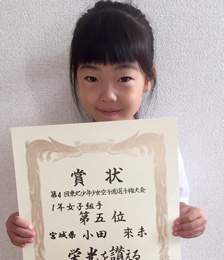 賞状
第4回東北少年少女空手道選手権大会
1年女子組手
第五位
宮城県 小田 來未
栄光を讃える